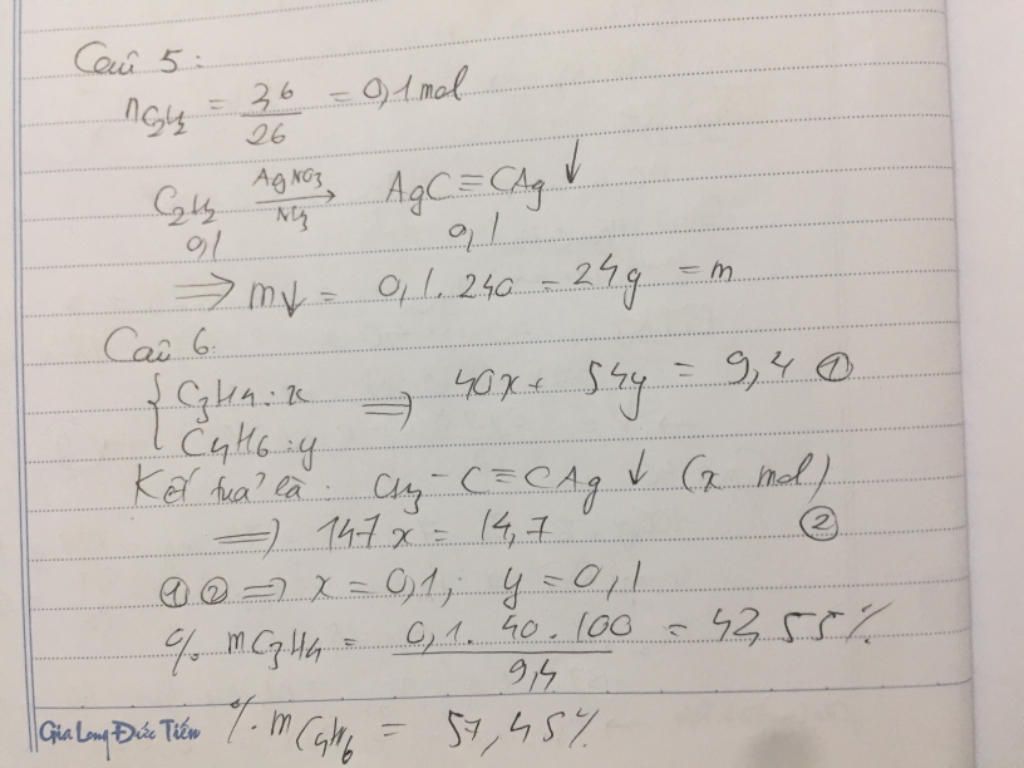 Câu 5:
nC2H2 = 2,6/26 = 0,1 mol
C2H2 AgNO3/NH3→ AgC≡CAg↓
0,1 0,1
⇒ m↓ = 0,1.240 = 24g = m
Câu 6:
{ C3H4: x ⇒ 40x + 54y = 9,4 ①
C4H6: y
Kết tủa là: CH3-C≡CAg↓ (x mol)
⇒ 147x = 14,7 ②
①② ⇒ x = 0,1; y = 0,1
% mC3H4 = 0,1.40.100/9,4 = 42,55%
%.mC4H6 = 57,45%
Gia Long Đức Tiến